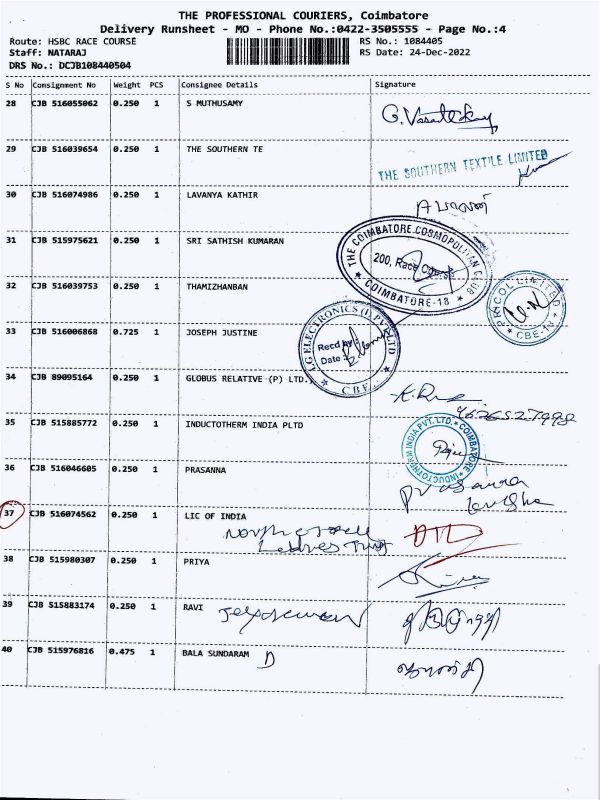 THE PROFESSIONAL COURIERS, Coimbatore
Delivery Runsheet - MO - Phone No.:0422-3505555 - Page No.:4
Route: HSBC RACE COURSE RS No.: 1084405
Staff: NATARAJ RS Date: 24-Dec-2022
DRS No.: DCJB108440504
S No Consignment No Weight PCS Consignee Details Signature
28 CJB 516055062 0.250 1 S MUTHUSAMY
29 CJB 516039654 0.250 1 THE SOUTHERN TE
THE SOUTHERN TEXTILE LIMITED
30 CJB 516074986 0.250 1 LAVANYA KATHIR
31 CJB 515975621 0.250 1 SRI SATHISH KUMARAN
THE COIMBATORE COSMOPOLITAN CLUB
200, Race Course
COIMBATORE-18
32 CJB 516039753 0.250 1 THAMIZHANBAN
PRICOL LIMITED
CBE-18
33 CJB 516006868 0.725 1 JOSEPH JUSTINE
LG ELECTRONICS (I) PVT LTD
Recd by:
Date :
CBE
34 CJB 89095164 0.250 1 GLOBUS RELATIVE (P) LTD.,
35 CJB 515885772 0.250 1 INDUCTOTHERM INDIA PLTD
INDUCTOTHERM INDIA PVT. LTD. COIMBATORE
36 CJB 516046605 0.250 1 PRASANNA
37 CJB 516074562 0.250 1 LIC OF INDIA
38 CJB 515980307 0.250 1 PRIYA
39 CJB 515883174 0.250 1 RAVI
40 CJB 515976816 0.475 1 BALA SUNDARAM D